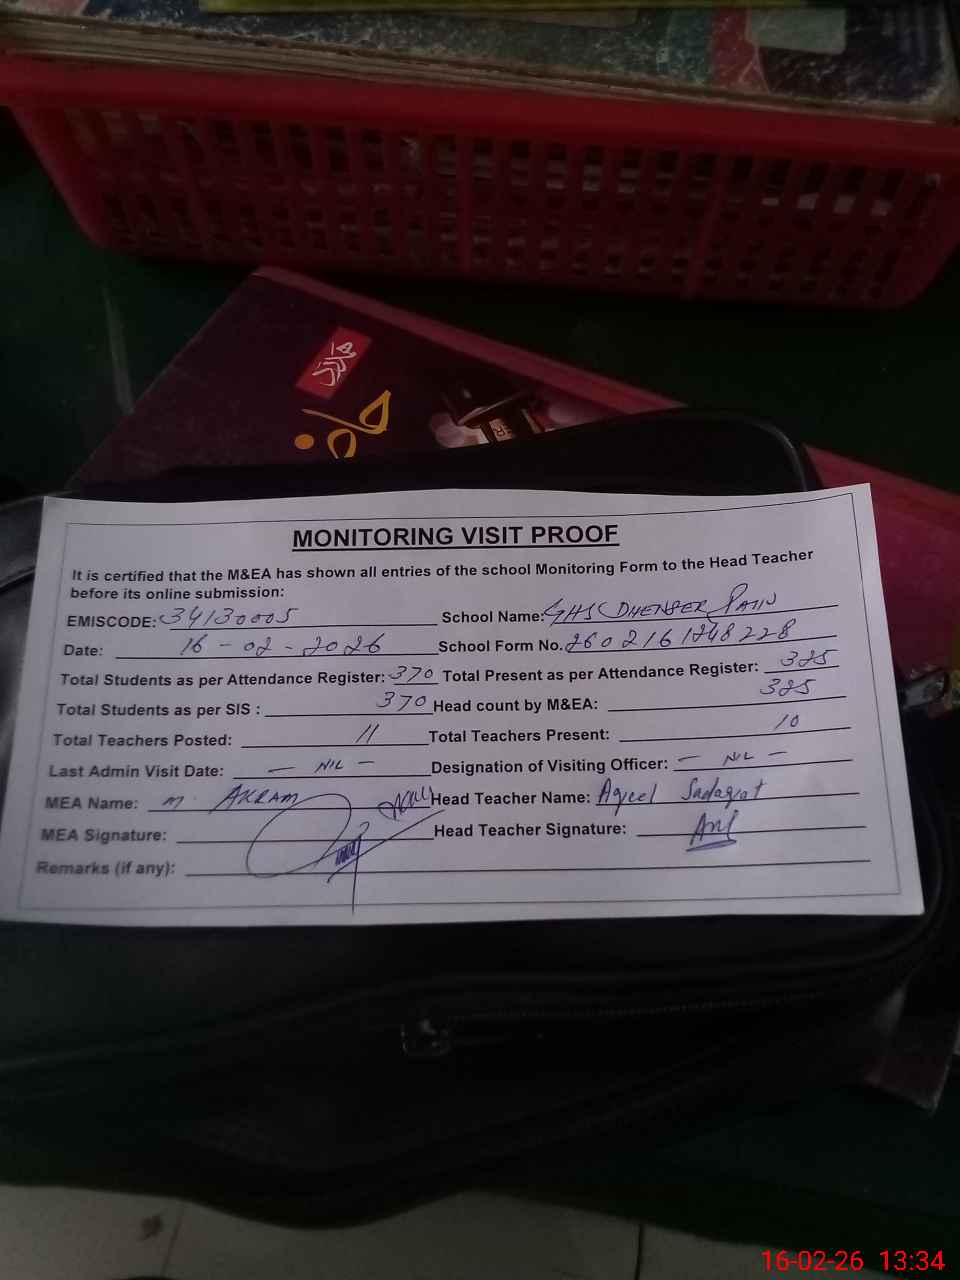 MONITORING VISIT PROOF
It is certified that the M&EA has shown all entries of the school Monitoring Form to the Head Teacher
before its online submission:
EMISCODE: 34130005 School Name: GHS DHENSER PAIN
Date: 16-02-2026 School Form No. 2602161248228
Total Students as per Attendance Register: 370 Total Present as per Attendance Register: 325
Total Students as per SIS : 370 Head count by M&EA: 325
Total Teachers Posted: 11 Total Teachers Present: 10
Last Admin Visit Date: — NIL — Designation of Visiting Officer: — NIL —
MEA Name: M. AKRAM Head Teacher Name: Aqeel Sadaqat
MEA Signature: Head Teacher Signature:
Remarks (if any):
16-02-26 13:34